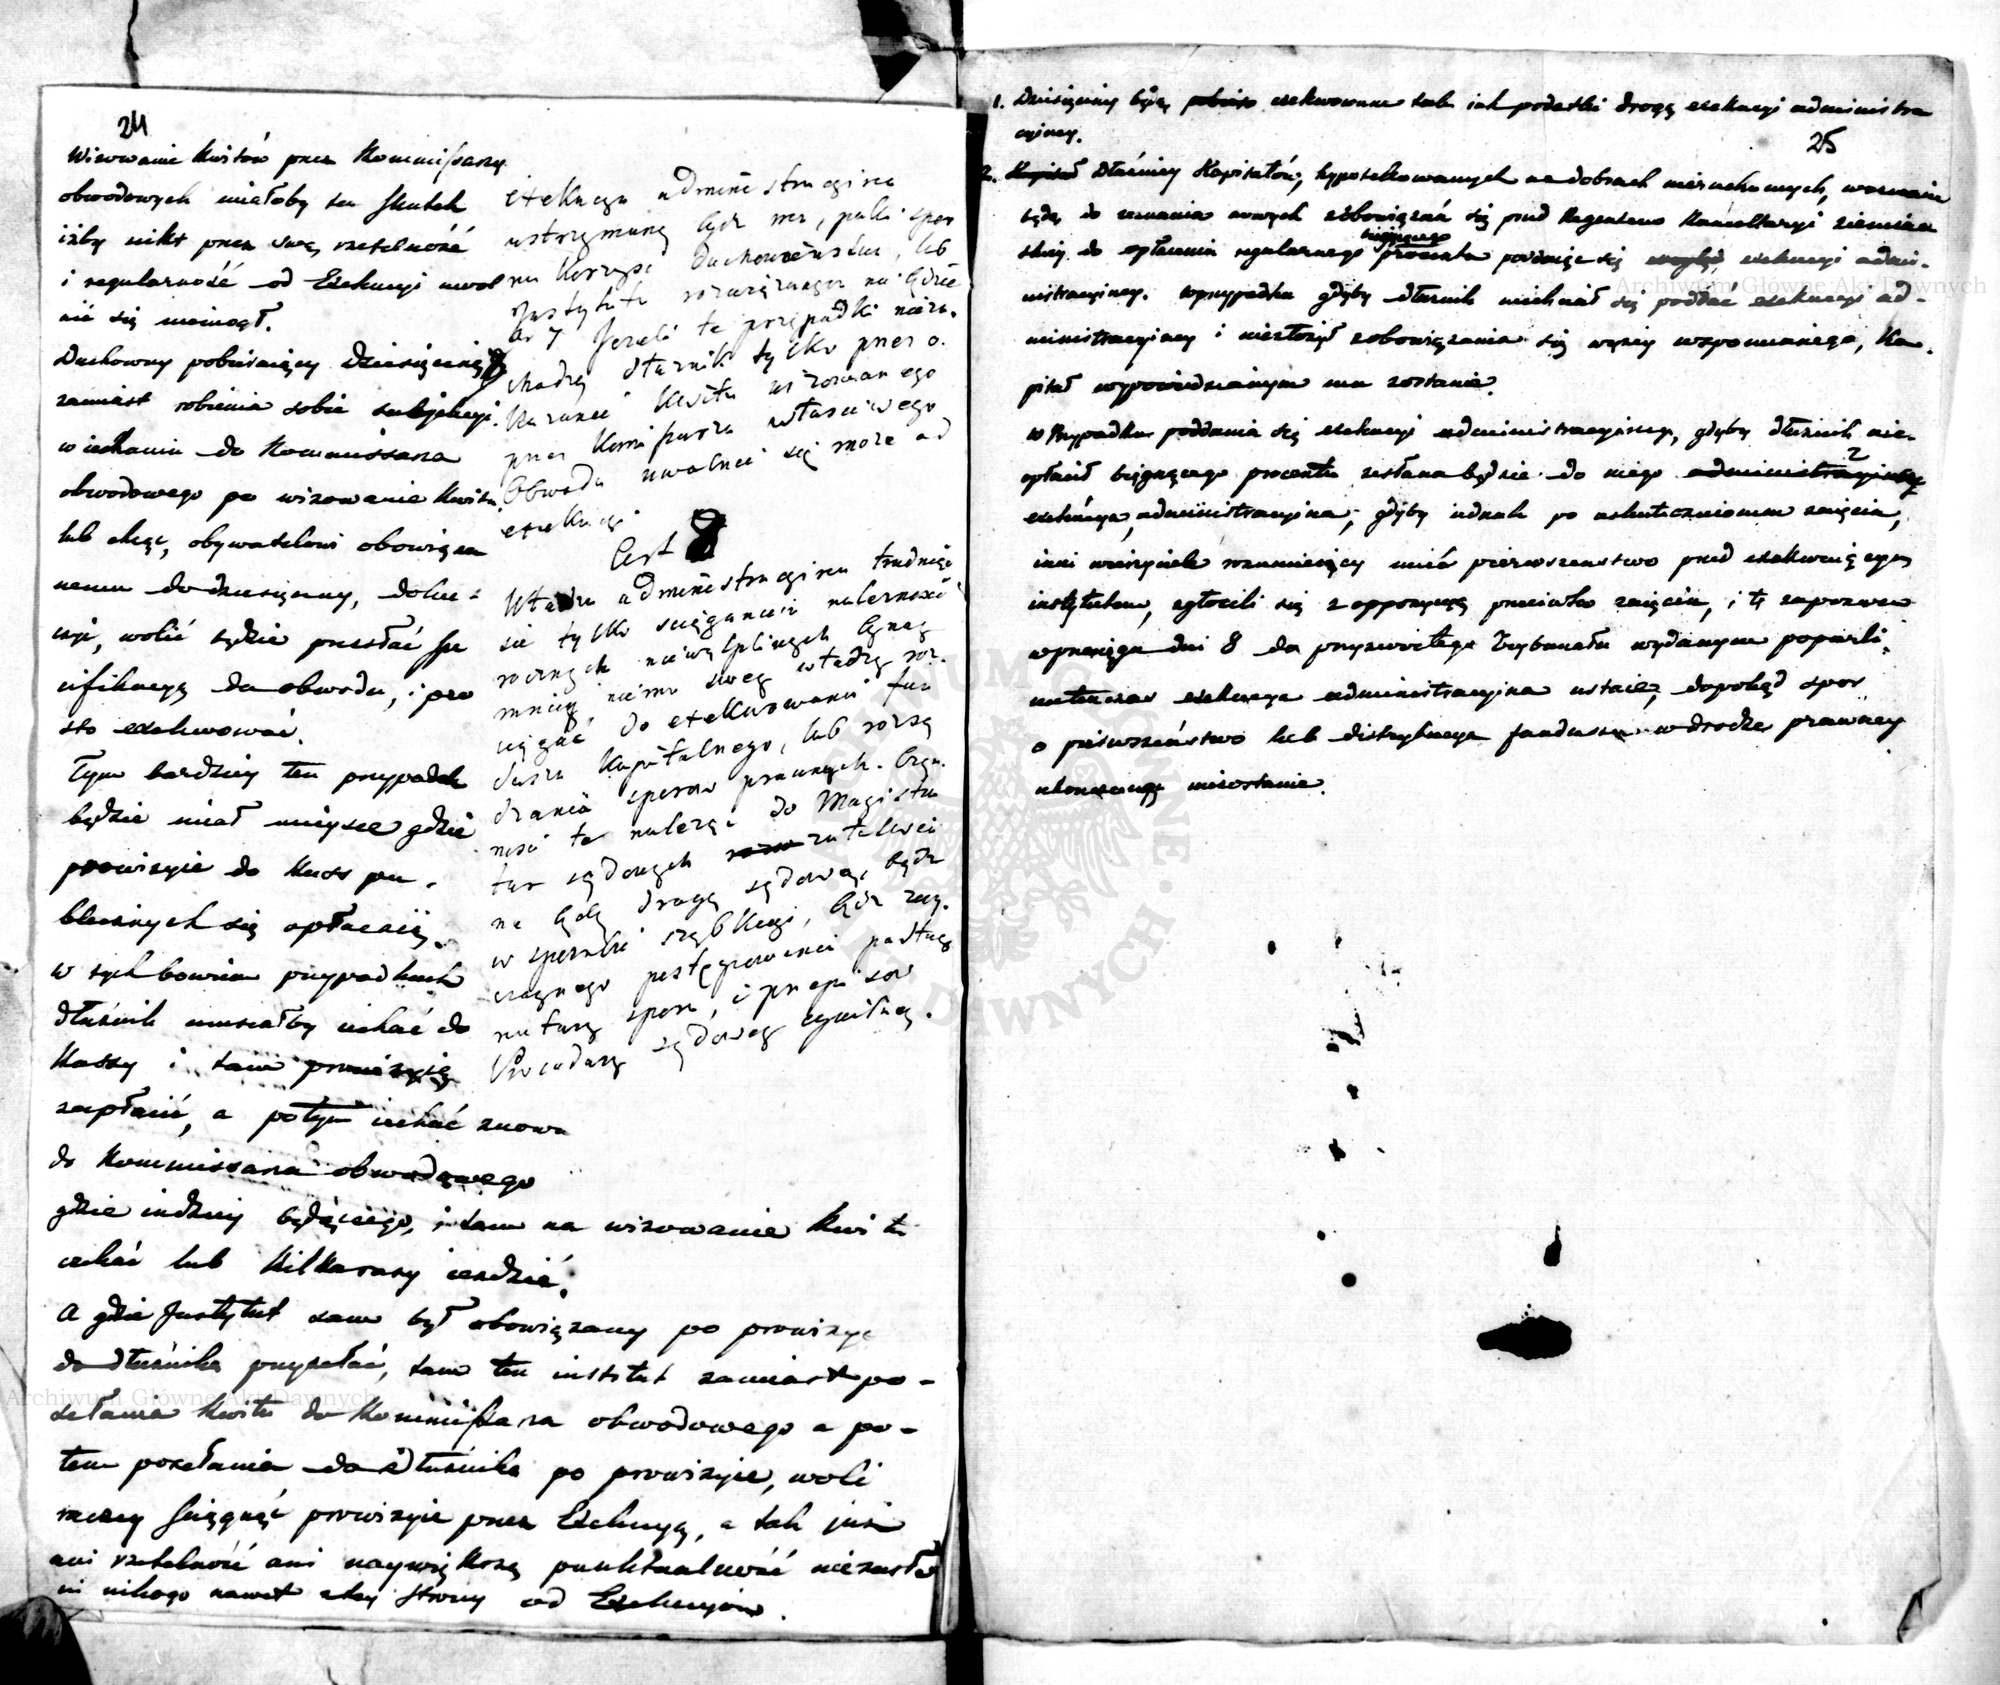 24
Wizowanie kwitów przez Kommissarzy
obwodowych miałoby ten skutek
iżby nikt przez swą rzetelność
i regularność od Exekucyi uwol
nić się niemógł.
Duchowny pobieraiący dziesięcinę
zamiast robienia sobie subjekcyi
w iechaniu do Kommissarza
obwodowego po wizowanie kwitu
lub chcąc, obywatelowi obowiąza
nemu do dziesięciny, doku-
czyć, wolić będzie przesłać spe
cifikacyą do obwodu, i pro
sto exekwować.
Tym bardziey ten przypadek
będzie miał mieysce gdzie
prowizyie do kass pu-
blicznych się opłacaią.
w tych bowiem przypadkach
dłużnik musiałby iechać do
kassy i tam prowizyię
zapłacić, a potym iechać znowu
do Kommissarza obwodowego
gdzie indziey będącego, i tam na wizowanie kwitu
czekać lub kilka razy iezdzić.
A gdzie Instytut sam był obowiązany po prowizye
do dłużnika przysełać, tam ten institut zamiast po-
sełania kwitu do Kommissarza obwodowego a po-
tem posełania do dłużnika po prowizyie, woli
raczey ściągnąć prowizyie przez Exekucyą, a tak już
ani rzetelność ani naywiększa punktualność niezasło
ni nikogo nawet z tey strony od Exekucyów.
exekucya administracyina
wstrzymaną bydź ma, póki spór
na korzyść duchowieństwa, lub
Instytutu rozwiązanym nie będzie
Ar 7 Jeżeli te przypadki nieza-
chodzą dłużnik tylko przez o-
kazanie kwitu wizowanego
przez Komissarza właściwego
Obwodu uwolnić się może od
exekucyi
Art 8
Władza administracyina trudniąc
się tylko ściąganiem należności
rocznych niewątpliwych bynay
mniey, niema swey władzy roz-
ciągać do exekwowania fun
duszu kapitalnego, lub rozsą
dzania sporów prawnych. Czyn-
ności te należą do Magistra
tur sądowych
na tęż drogę sądową, bądź
w sposobie szybkiey, bądź zwy-
czaynego postępowania podług
natury sporu, i przepisów
Procedury sądowey cywilney.
1. Dziesięciny będą exekwowane tak iak podatki drogą exekucyi administra
cyiney.
25
2. Dłużnicy kapitałów, hypotekowanych na dobrach nieruchomych, wezwani
będą do zeznania nowych zobowiązań się przed Regentem Kancellaryi ziemiań
skiey do opłacania regularnego bieżącego procentu poddaiąc się exekucyi admi-
nistracyiney. w przypadku gdyby dłużnik niechciał się poddać exekucyi ad-
ministracyiney i niezłożył zobowiązania się wyżey wspomnianego, Ka-
pitał wypowiedzianym mu zostanie.
w Przypadku poddania się exekucyi administracyiney, gdyby dłużnik nie-
opłacił bieżącego procentu zesłana będzie do niego
exekucya administracyina; gdyby iednak po uskutecznionem zaięciu,
inni wierzyciele rozumieiący mieć pierwszeństwo przed exekwuiącym
instytutem, zgłosili się z oppozycyą przeciwko zaięciu, i tę zapozwem
w przeciągu dni 8 do przyzwoitego Trybunału wydanym poparli,
natenczas exekucya administracyina ustaie, dopokąd spór
o pierwszeństwo lub distrybucya funduszu w drodze prawney
ukończoną niezostanie.